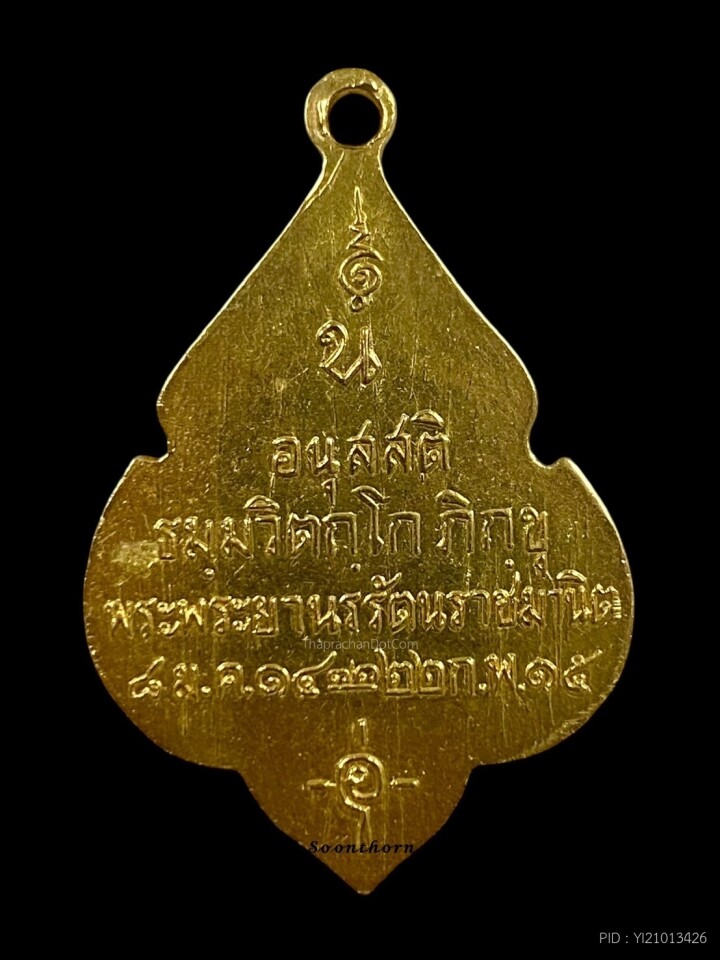 น
อนุสสติ
ธมฺมวิตกฺโก ภิกฺขุ
พระพระยานรรัตนราชมานิต
ThaprachanDotCom
๘ ม.ค.๑๔ ๒๒ ก.พ.๑๕
Soonthorn
PID : YI21013426